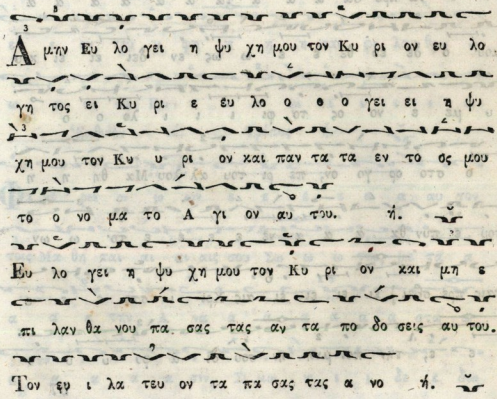 Α μην Ευ λο γει η ψυ χη μου τον Κυ ρι ον ευ λο
γη τος ει Κυ ρι ε ευ λο ο ο ο γει ει η ψυ
χη μου τον Κυ υ ρι ον και παν τα τα εν το ος μου
το ο νο μα το Α γι ον αυ του. ή.
Ευ λο γει η ψυ χη μου τον Κυ ρι ον και μη ε
πι λαν θα νου πα σας τας αν τα πο δο σεις αυ του.
Τον ευ ι λα τευ ον τα πα σας τας α νο ή.